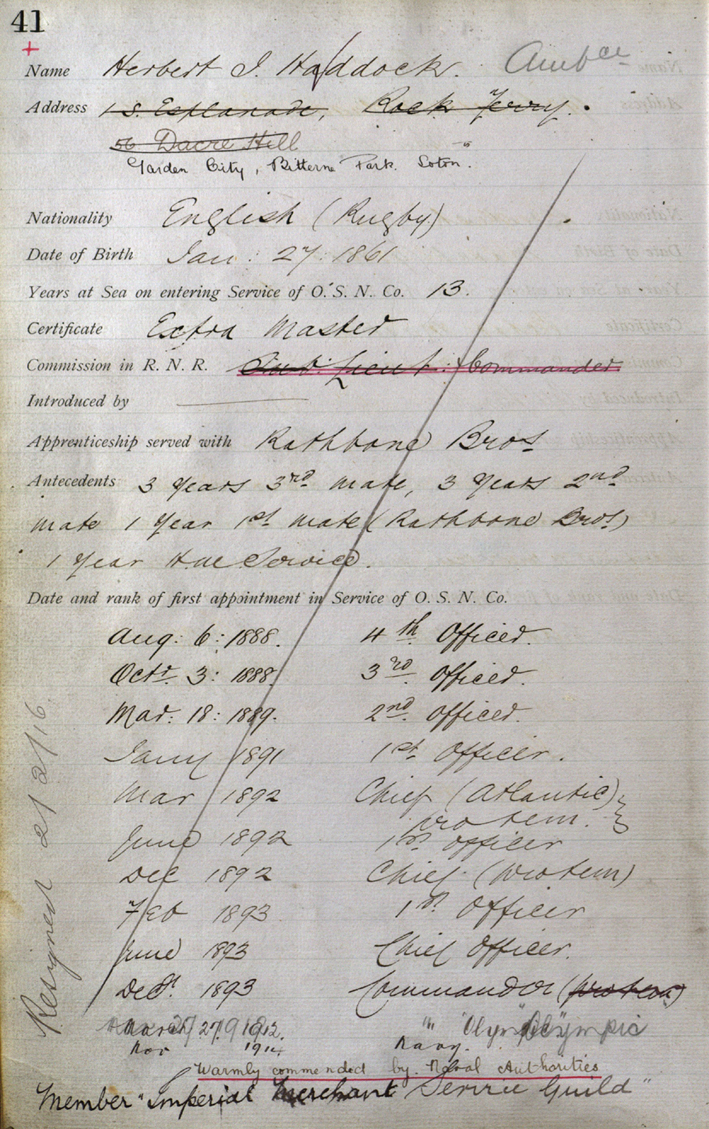 41
+
Name Herbert J. Haddock. Ambce
Address 1 S. Esplanade, Rock Ferry.
56 Dacre Hill
Garden City, Bitterne Park. Soton.
Nationality English (Rugby)
Date of Birth Jan: 27: 1861
Years at Sea on entering Service of O.S.N. Co. 13.
Certificate Extra Master
Commission in R. N. R. Sub: Lieut: Commander
Introduced by
Apprenticeship served with Rathbone Bros
Antecedents 3 years 3rd mate, 3 years 2nd
mate 1 year 1st mate (Rathbone Bros)
1 year Service.
Date and rank of first appointment in Service of O. S. N. Co.
Aug: 6: 1888. 4th Officer.
Octr 3: 1888. 3rd Officer.
Mar: 18: 1889. 2nd Officer.
Jany 1891 1st Officer.
Mar 1892 Chief (Atlantic)
protem.
June 1892 1st Officer
Dec 1892 Chief (protem)
Feb 1893 1st Officer
June 1893 Chief Officer.
1893 Commander (protem)
March 27. 1912. " "Olympic
Nov 1914 Navy.
Warmly commended by Naval Authorities
Member "Imperial Merchant Service Guild"
Resigned 2/2/16.